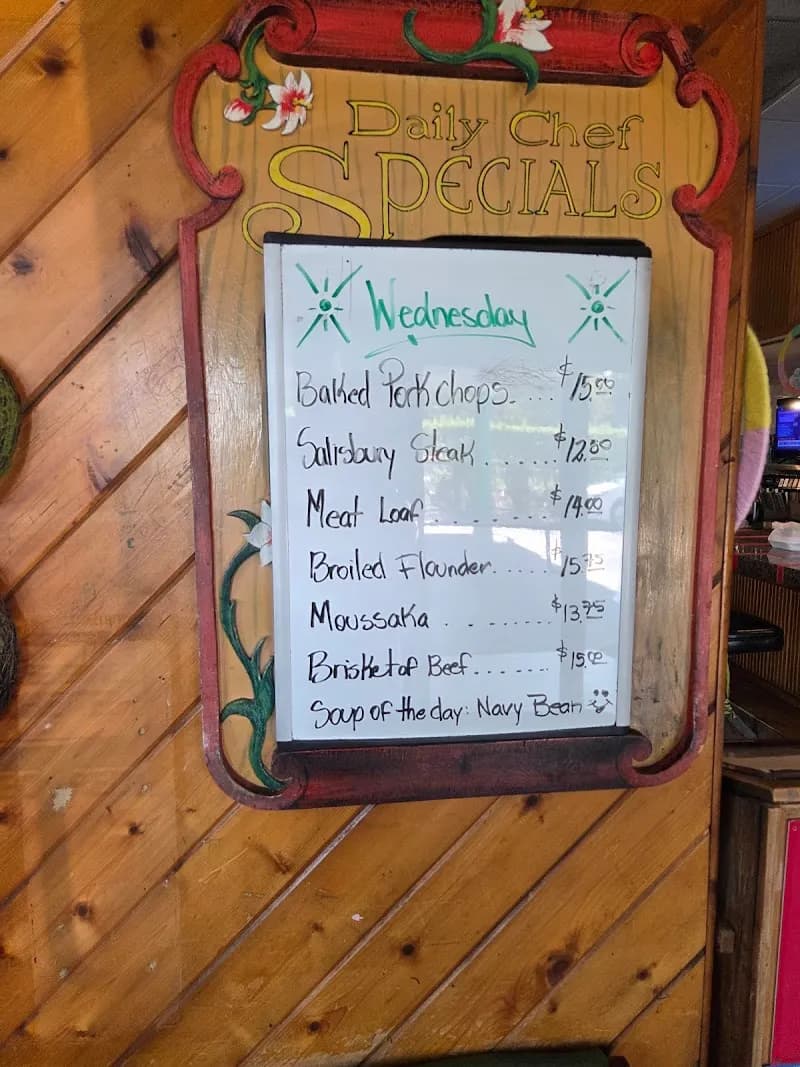 Daily Chef
SPECIALS
Wednesday
Baked Pork chops.... $15.00
Salisbury Steak....... $12.50
Meat Loaf.......... $14.00
Broiled Flounder...... $15.75
Moussaka.......... $13.75
Brisket of Beef....... $15.00
Soup of the day: Navy Bean